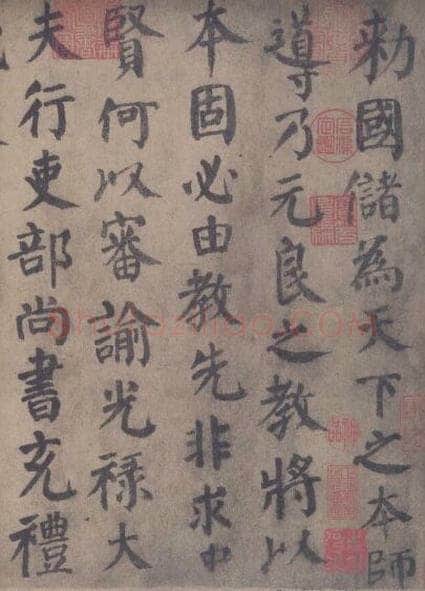 勑國儲為天下之本師
導乃元良之教將以
本固必由教先非求中
賢何以審諭光祿大
夫行吏部尚書充禮